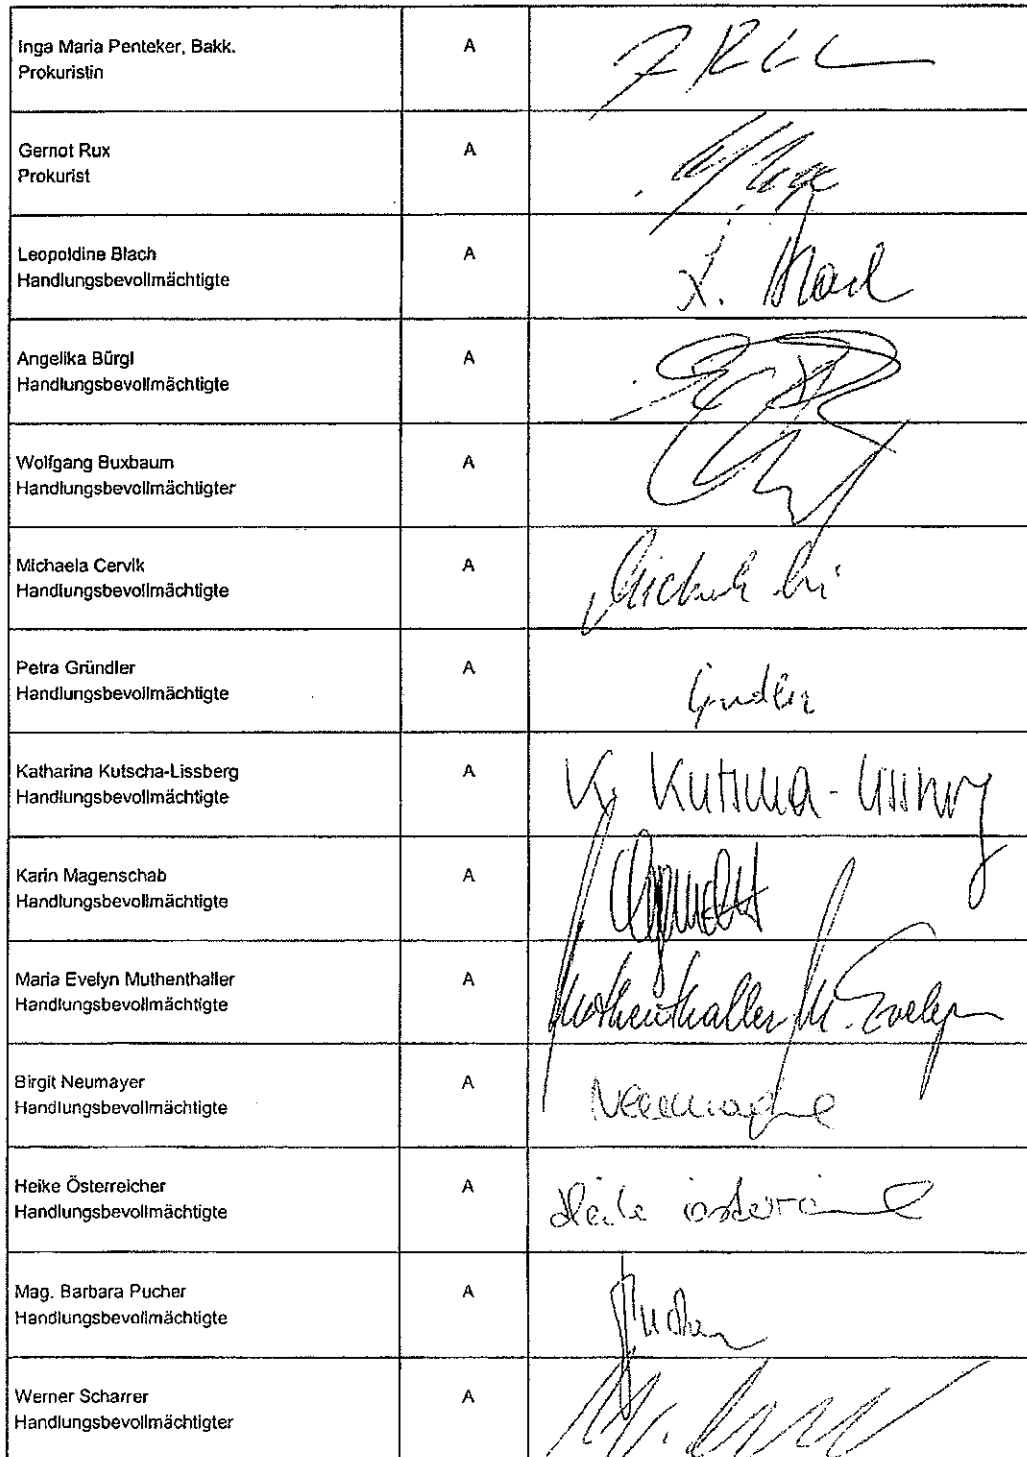 Inga Maria Penteker, Bakk. A
Prokuristin
Gernot Rux A
Prokurist
Leopoldine Blach A
Handlungsbevollmächtigte L. Blach
Angelika Bürgl A
Handlungsbevollmächtigte
Wolfgang Buxbaum A
Handlungsbevollmächtigter
Michaela Cervik A
Handlungsbevollmächtigte
Petra Gründler A
Handlungsbevollmächtigte
Katharina Kutscha-Lissberg A K. Kutscha-Lissberg
Handlungsbevollmächtigte
Karin Magenschab A
Handlungsbevollmächtigte
Maria Evelyn Muthenthaller A
Handlungsbevollmächtigte Muthenthaller M. Evelyn
Birgit Neumayer A
Handlungsbevollmächtigte Neumayer
Heike Österreicher A
Handlungsbevollmächtigte Heike Österreicher
Mag. Barbara Pucher A
Handlungsbevollmächtigte Pucher
Werner Scharrer A
Handlungsbevollmächtigter